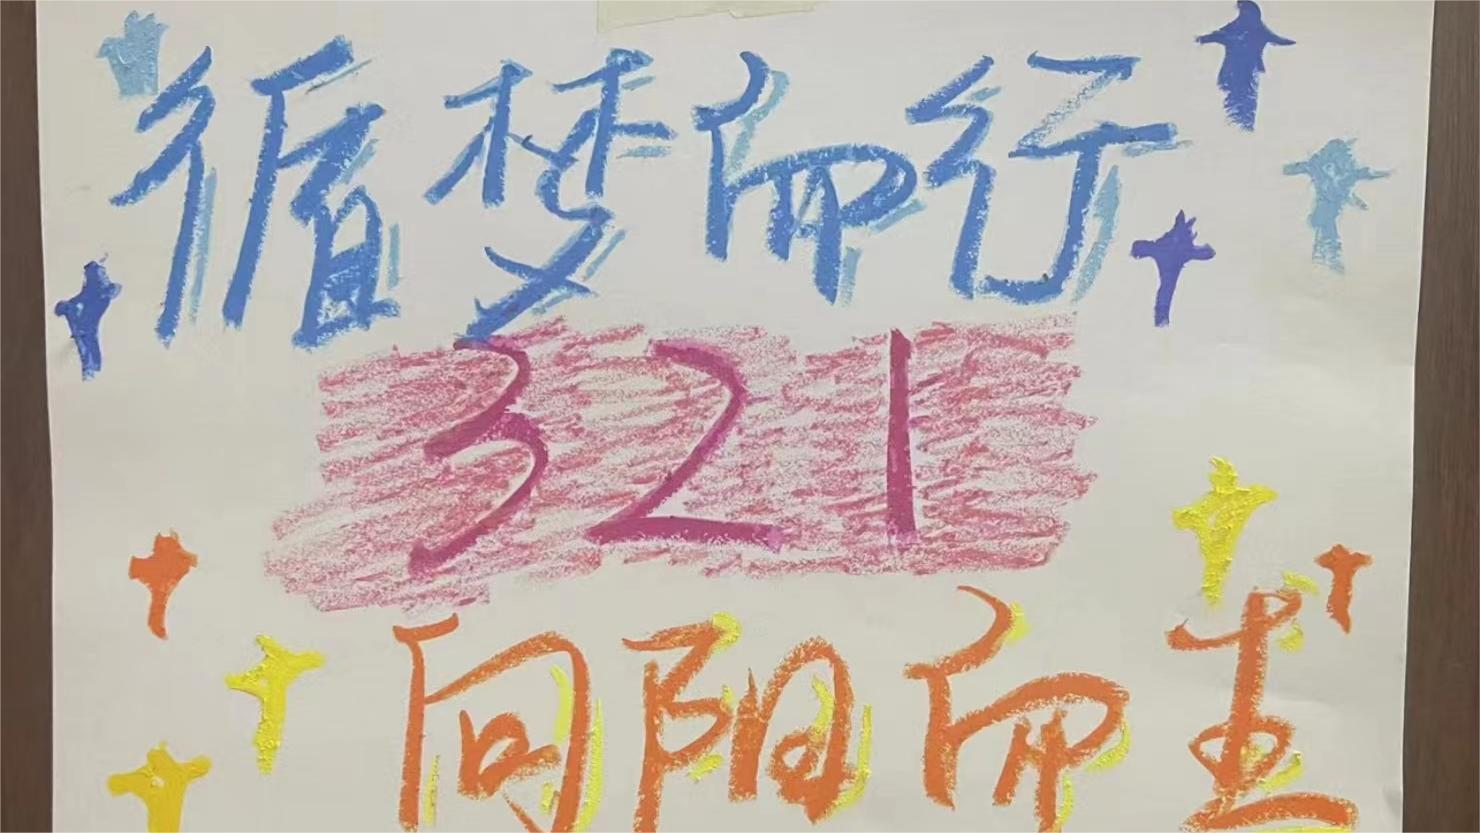 循梦而行
321
向阳而生